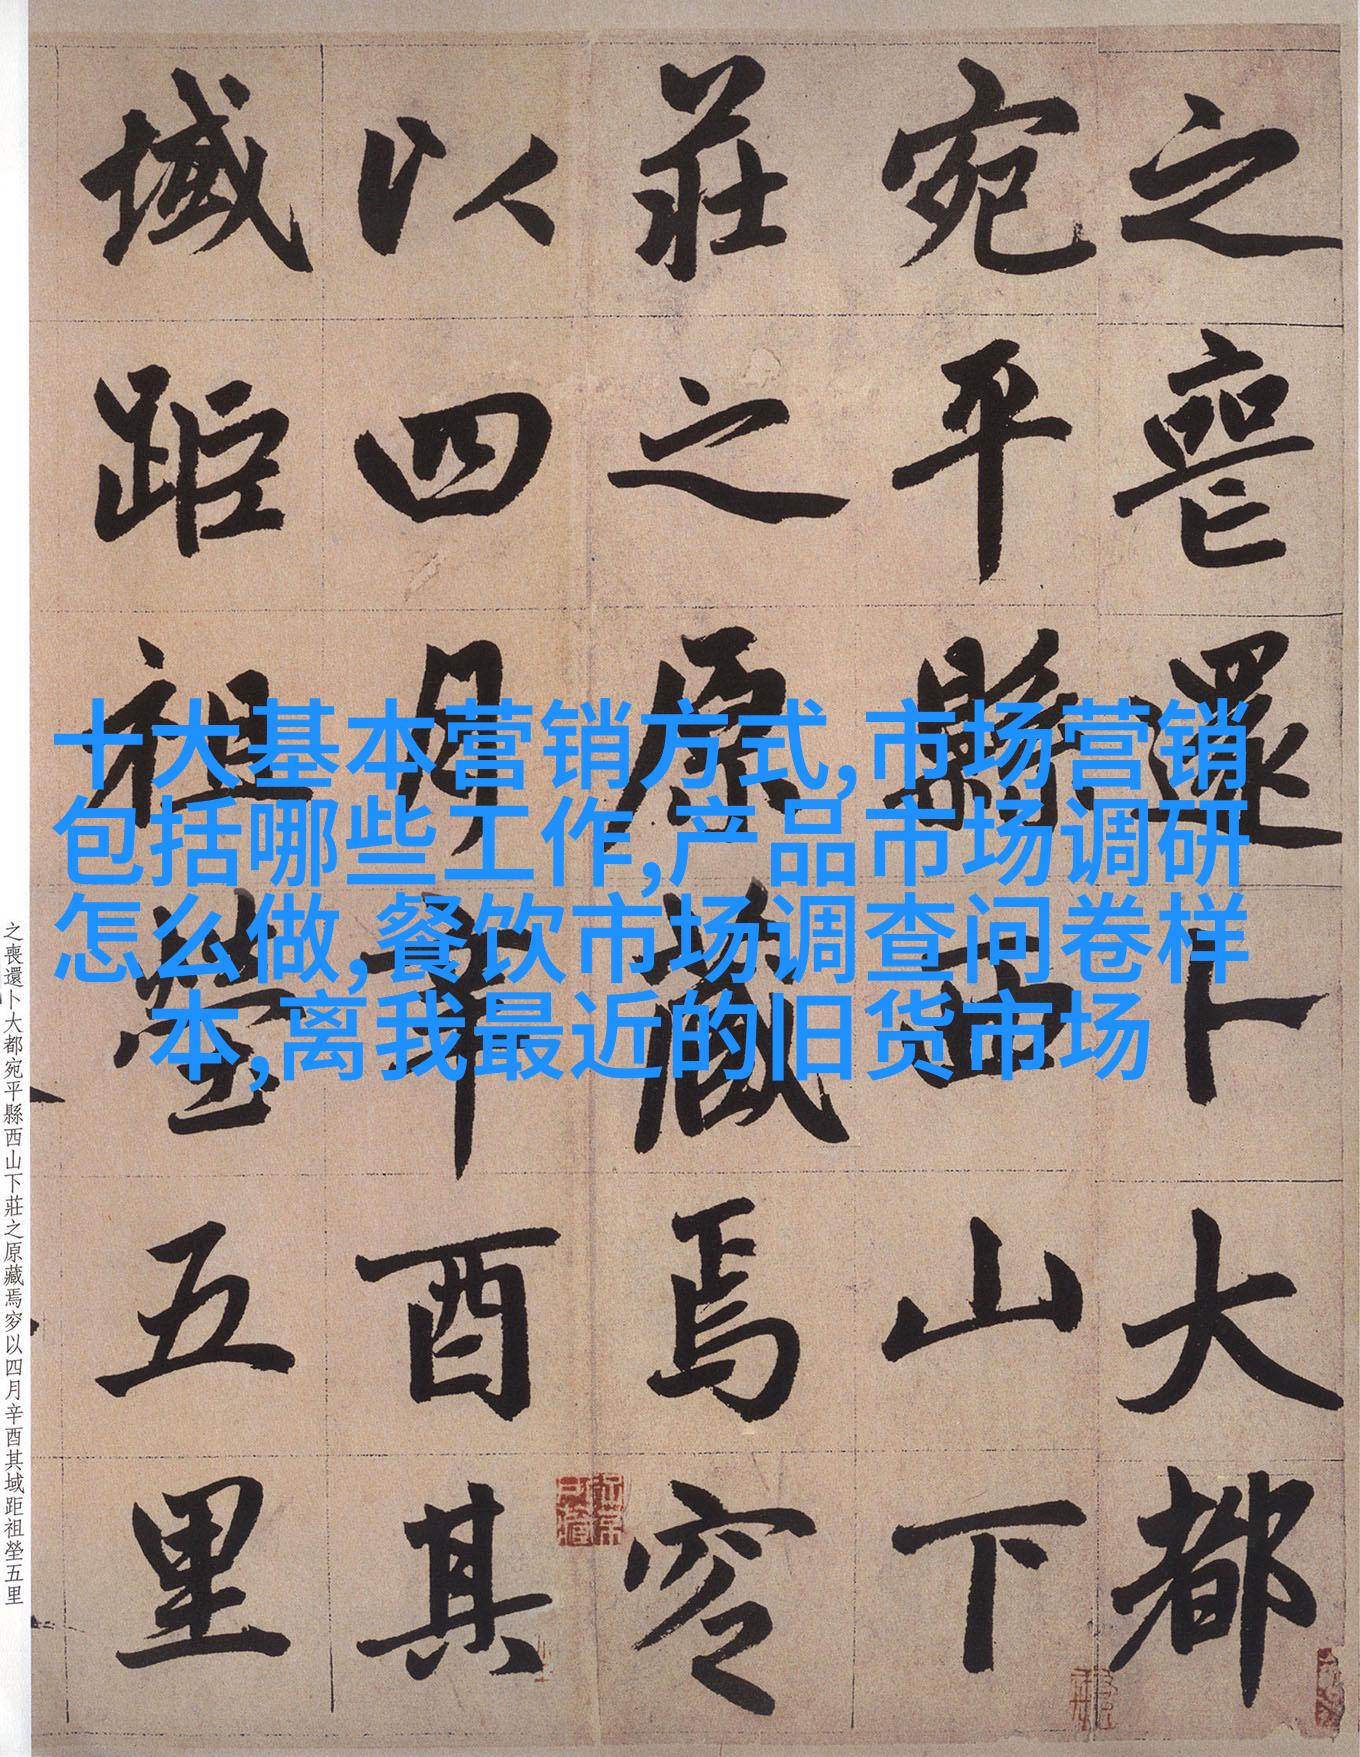 之喪還卜大都
宛平縣西山下
莊之原藏焉穸
以四月辛酉其
域距祖塋五里
十大基本营销方式,市场营销
包括哪些工作,产品市场调研
怎么做,餐饮市场调查问卷样
本,离我最近的旧货市场
之喪還卜大都宛平縣西山下莊之原藏焉穸以四月辛酉其域距祖塋五里